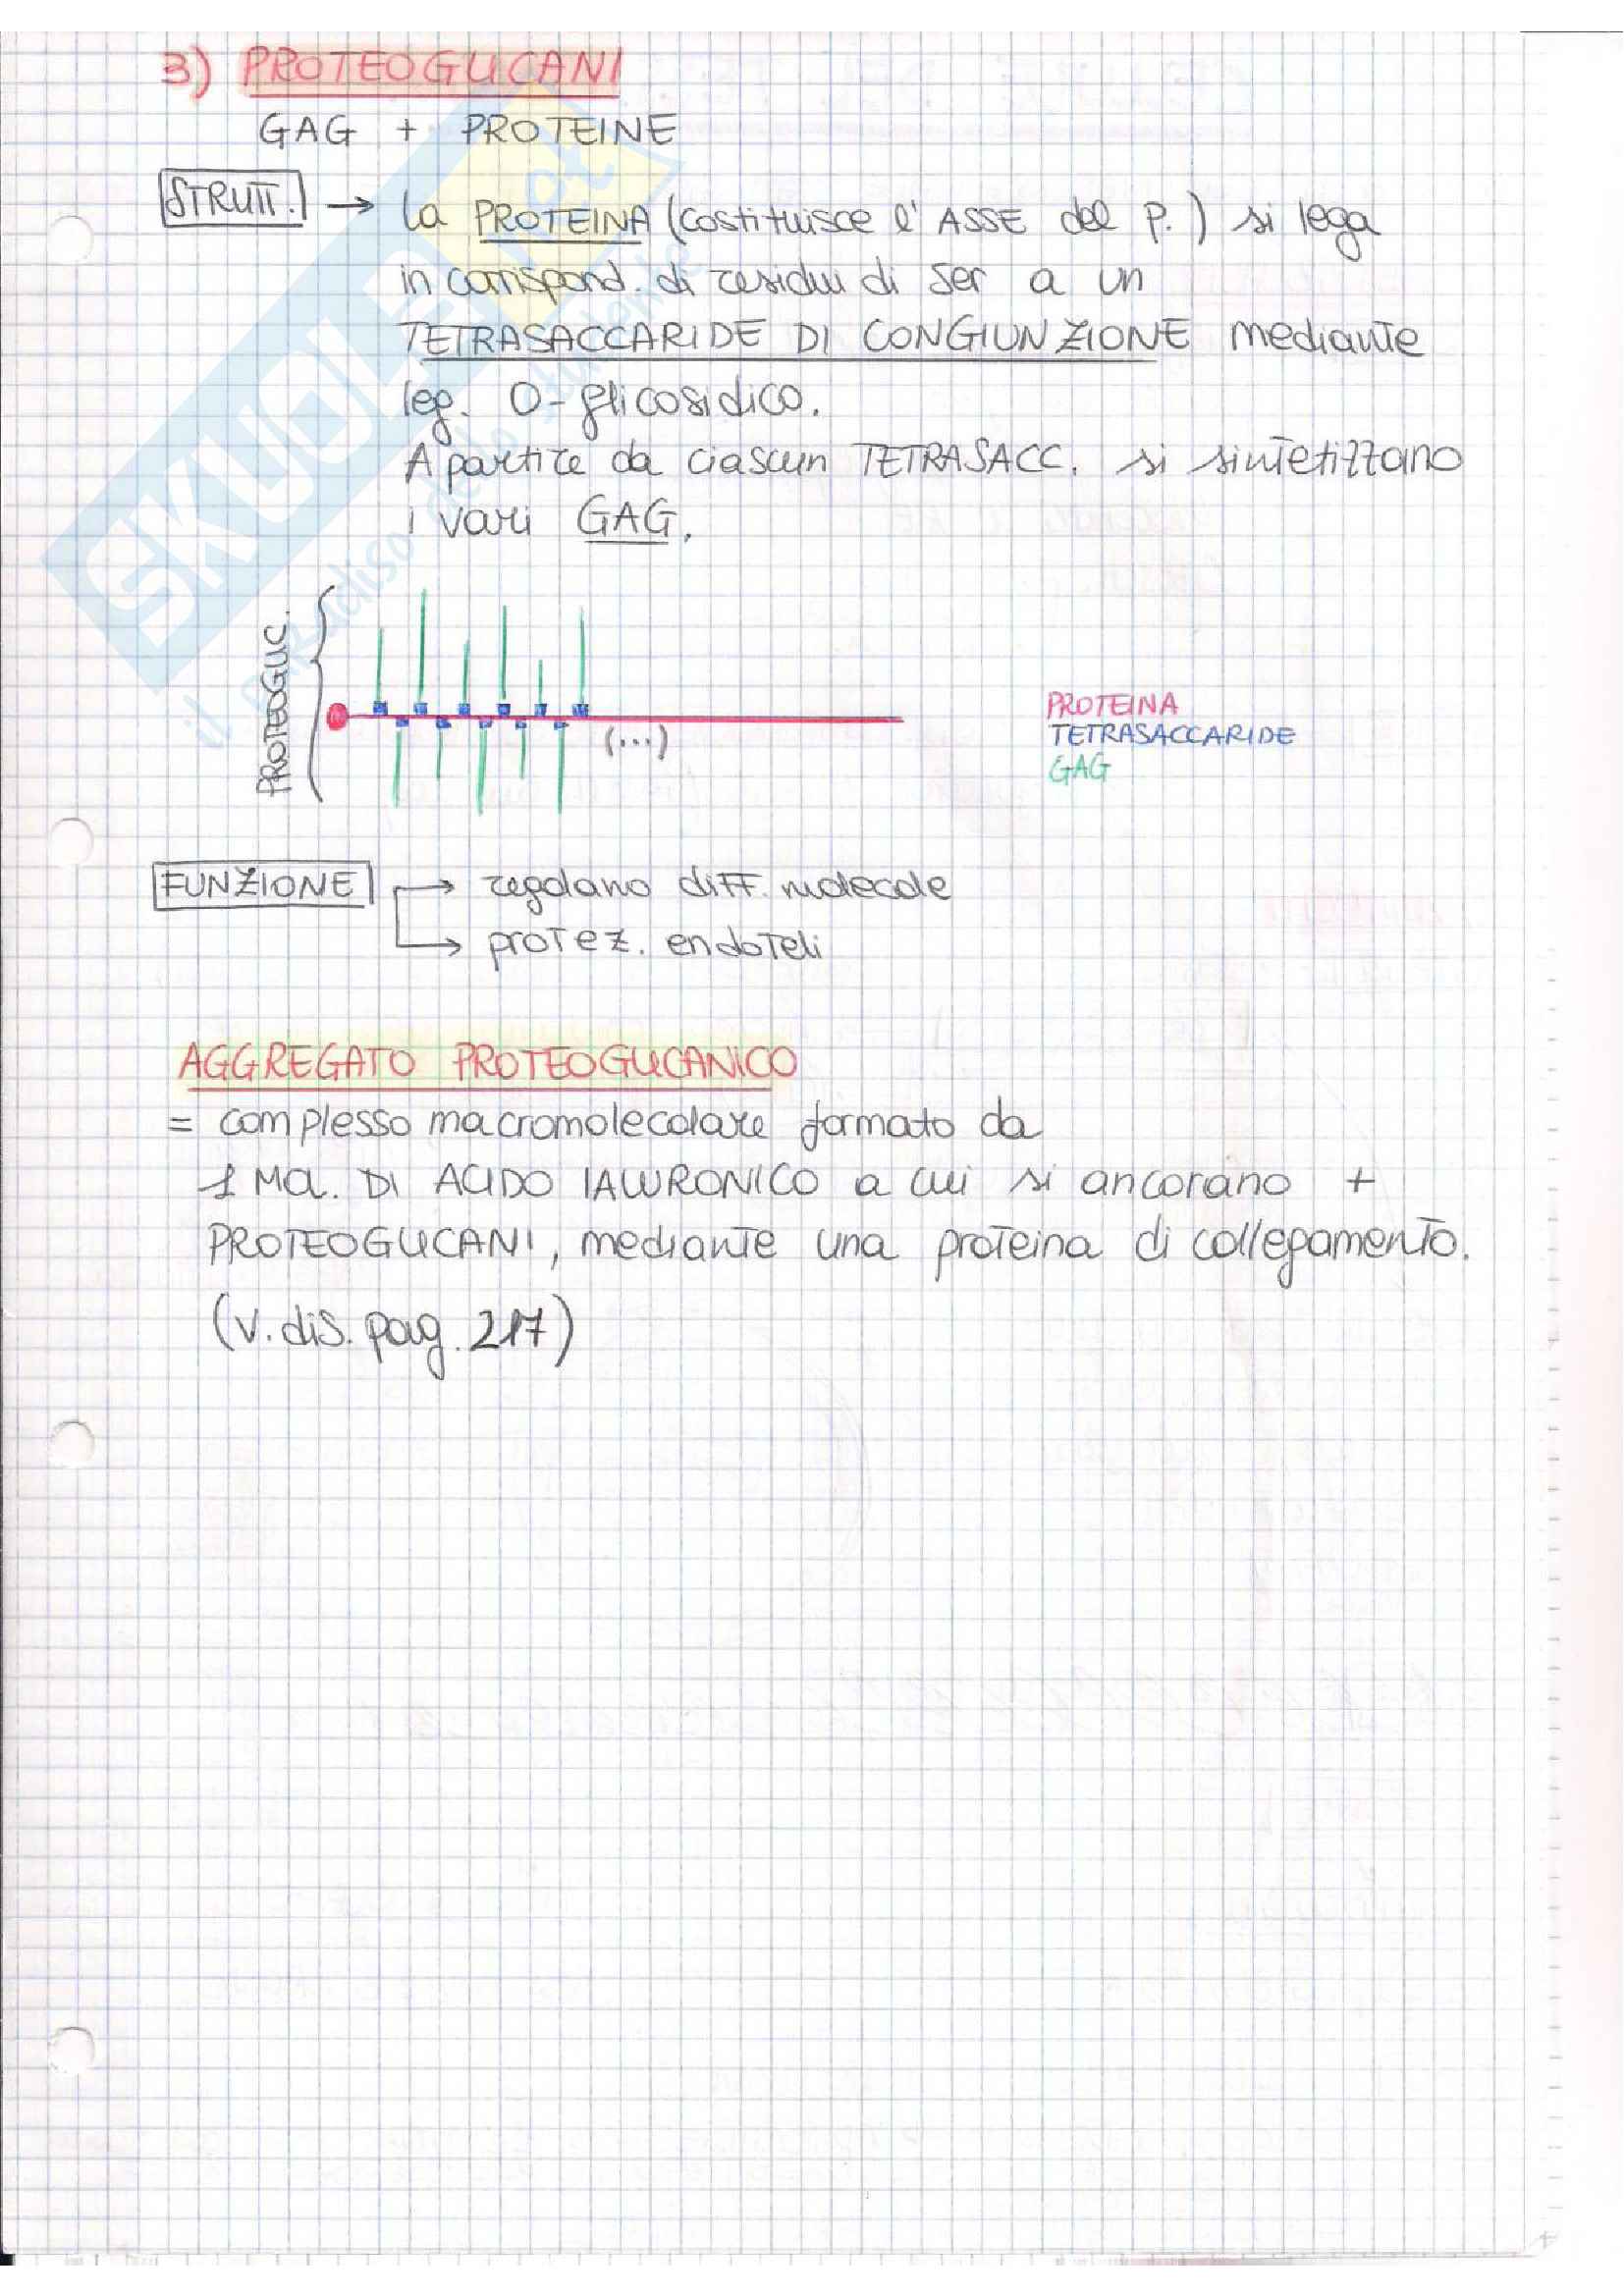 3) PROTEOGLICANI
GAG + PROTEINE
STRUTT. → la PROTEINA (costituisce l'ASSE del P.) si lega
in corrispond. di residui di Ser a un
TETRASACCARIDE DI CONGIUNZIONE mediante
leg. O-glicosidico.
A partire da ciascun TETRASACC. si sintetizzano
i vari GAG.
PROTEOGLIC.
(...)
PROTEINA
TETRASACCARIDE
GAG
FUNZIONE → regolano diff. molecole
→ protez. endoteli
AGGREGATO PROTEOGLICANICO
= complesso macromolecolare formato da
1 MOL. DI ACIDO IALURONICO a cui si ancorano +
PROTEOGLICANI, mediante una proteina di collegamento.
(v. dis. pag. 217)
SKUOLA.net
il paradiso dello studente